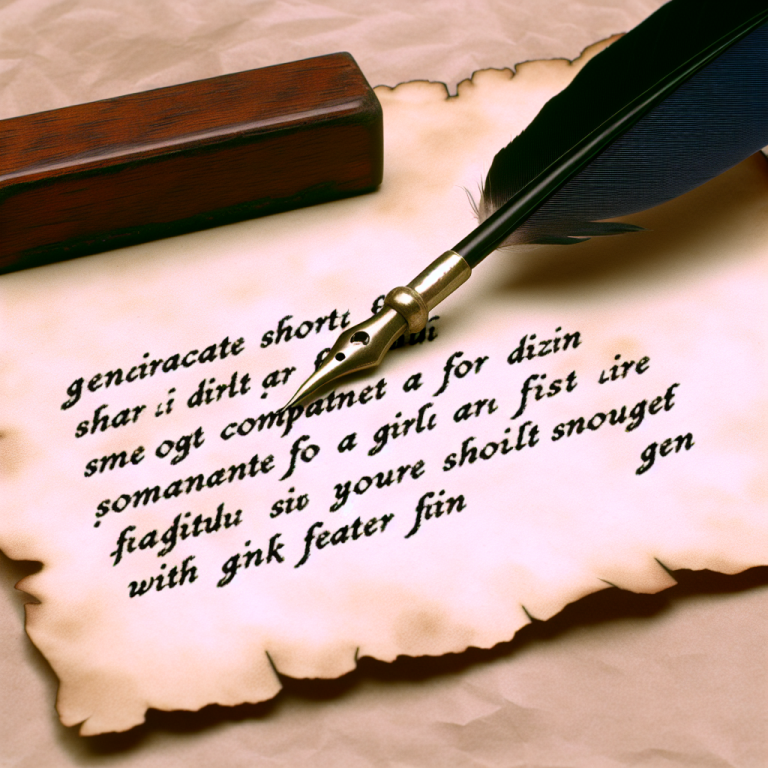 genciracate shortt
shar dirlt ar
sme ogt compatnet a for dizin
somanante fo a girlc arı fist
fiagitulu sio youre shoilt snouget
with gink feater fiin gen